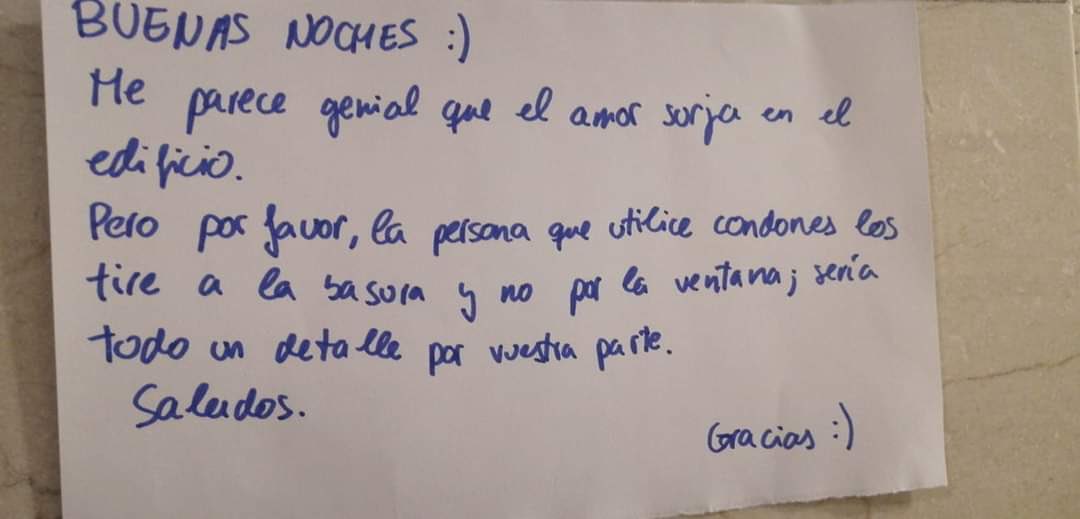 BUENAS NOCHES :)
Me parece genial que el amor surja en el
edificio.
Pero por favor, la persona que utilice condones los
tire a la basura y no por la ventana; sería
todo un detalle por vuestra parte.
Saludos.
Gracias :)